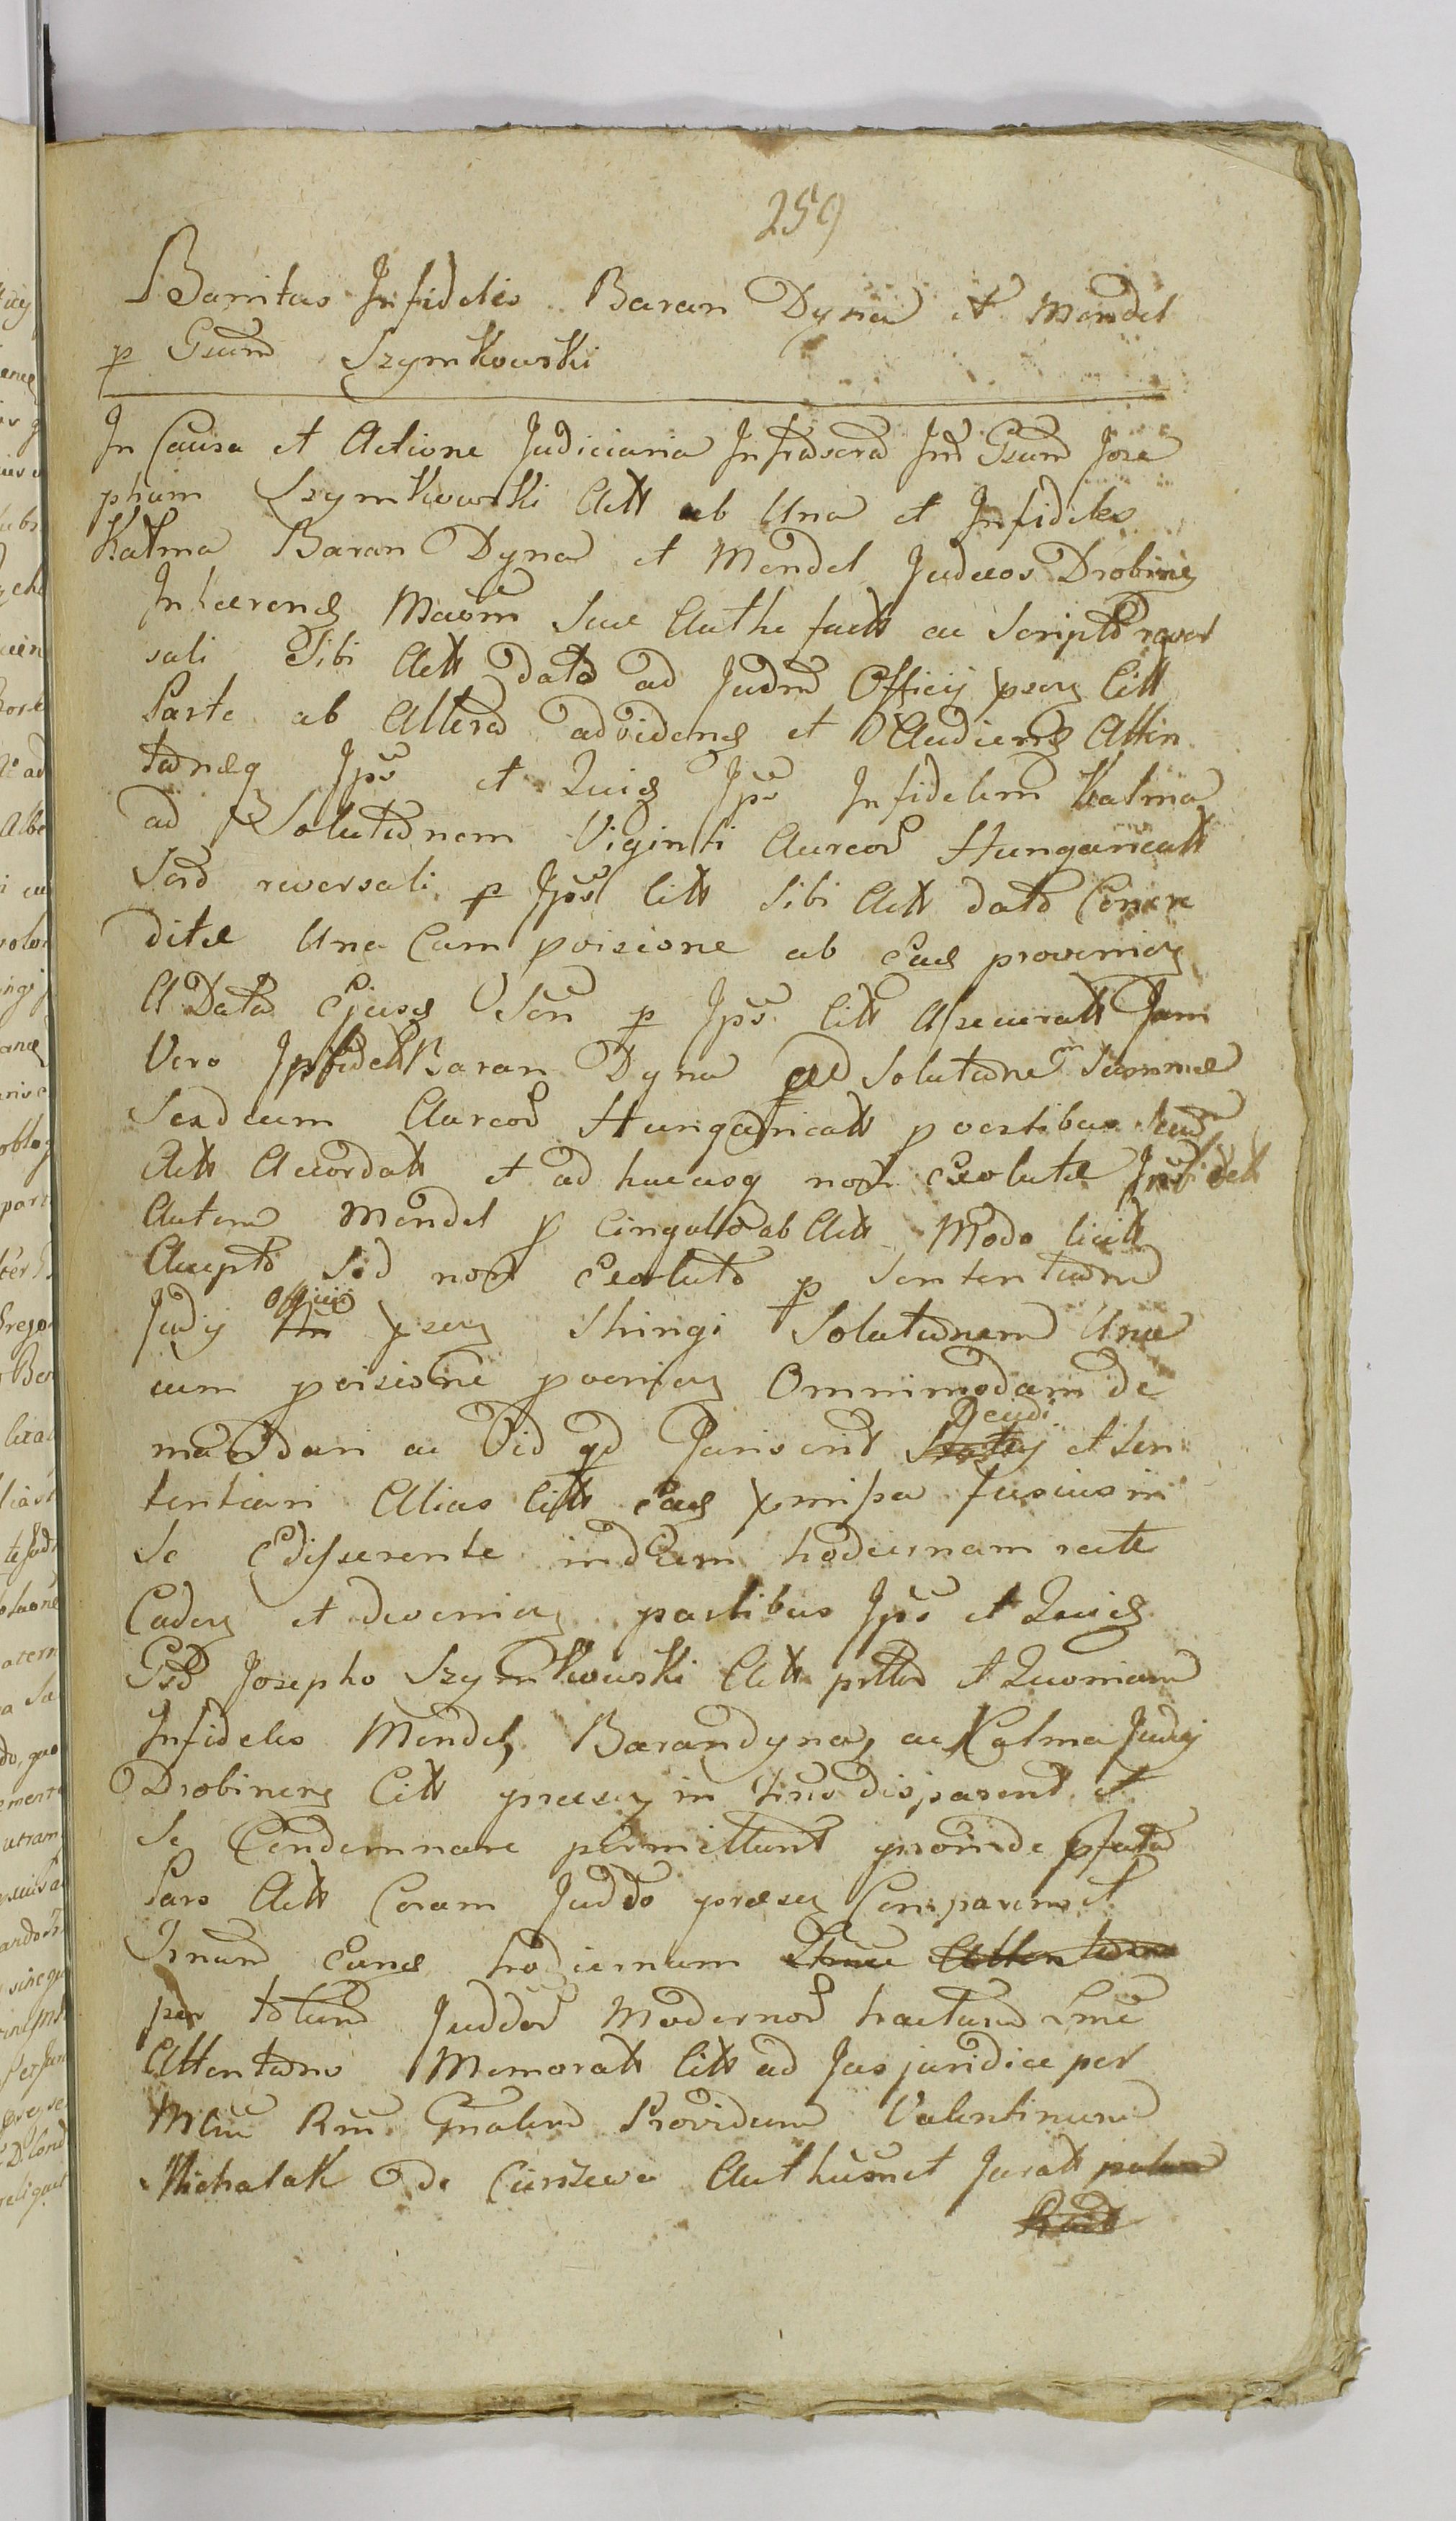 259
Banitas Infidelis Baran Dyna et Mendel
p Gsum Szymkowski
In Causa et Actione Judiciaria Infrascra Inr Gsum Jose
phum Szymkowski Actt ab Una et Infideles
Kalma Baran Dyna et Mendel Judeos Drobinẽ
Inhaerenẽ Suae Authe factt ac Scripto rever
sali Sibi Actt dato ad Judm Officij pseñ Citt
Parte ab Altera advidenẽ et Audienẽ Attin
Ipõ et Ipõ Infidelem Kalma
ad Solutionem Viginti Aureor Hungaricatt
reversali p Ipõ Citt Sibi Actt dato
ditae Una Cum poisione ab Eaẽ provenieñ
A Data Ejusẽ p Ipõ Citt Assecuratt Jam
Vero Infidelt Baran Dyna ad Solutionem Summae
Sexdecim Aureor Hungaricatt p vestibus
Actt Accordatt et ad hucusq non Exolutae Infidelt
Autem Mendel p Cingulo ab Actt Modo licitt
Accepto Sed non Exoluto p Sententiam
Judij Officij pseñ Stringi Solutionem Una
cum poisione pvenieñ Omnimodam de
mandari ac Id qd Juris erit Decidi et Sen
tentiari Alias Citt Eaẽ pmissa fusius in
Se Edisserente indiem hodiernam recte
Cadeñ et devenieñ partibus Ipõ et
Gsõ Josepho Szymkowski Actt et Quoniam
Infideles Mendel, Baran Dyna, ac Kalma Judej
Drobineñ Citt praeseñ in trno disparent et
Se Condemnare permittunt proinde pfata
Pars Actt Coram Juddo praeseñ Comparens et
Trnum Eunẽ hodiernum
per totum Juddor Modernor tractum Lme
Attentans Memoratt Citt ad Jus juridice per
Mlem Rni Gnalem Providum Valentinum
Michalak de Autheum et Juratt